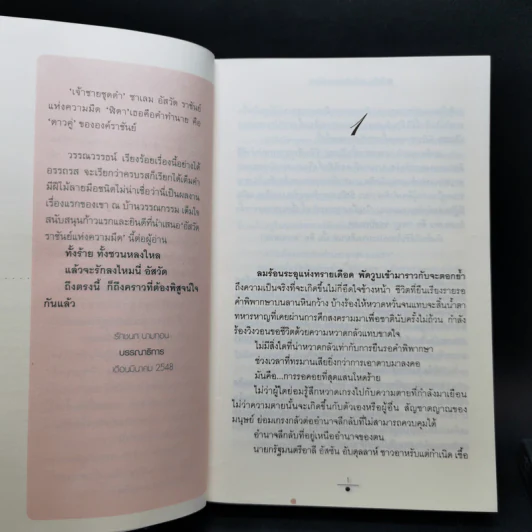 'เจ้าชายชุดดำ' ชาเลม อัสวัด ราชันย์
แห่งความมืด 'ฟิดา' เธอคือคำทำนาย คือ
'ดาวคู่' ขององค์ราชันย์
วรรณวรรธน์ เรียงร้อยเรื่องนี้อย่างได้
อรรถรส จะเรียกว่าครบรสก็เรียกได้เต็มคำ
มีฝีไม้ลายมือชนิดไม่น่าเชื่อว่านี่เป็นผลงาน
เรื่องแรกของเขา ณ บ้านวรรณกรรม เต็มใจ
สนับสนุนก้าวแรกและยินดีที่นำเสนอ 'อัสวัด
ราชันย์แห่งความมืด' นี้ต่อผู้อ่าน
ทั้งร้าย ทั้งชวนหลงใหล
แล้วจะรักลงไหมนี่ อัสวัด
ถึงตรงนี้ ก็ถึงคราวที่ต้องพิสูจน์ใจ
กันแล้ว
บรรณาธิการ
เดือนมีนาคม 2548
1
ลมร้อนระอุแห่งทรายเดือด พัดวูบเข้ามาราวกับจะตอกย้ำ
ถึงความเป็นจริงที่จะเกิดขึ้นในกี่อึดใจข้างหน้า ชีวิตที่ยืนเรียงรายรอ
คำพิพากษาบนลานหินกว้าง บ้างร้องไห้หวาดหวั่นจนแทบจะสิ้นน้ำตา
ทหารหาญที่เคยผ่านการศึกสงครามมาเพื่อชาตินับครั้งไม่ถ้วน กำลัง
ร้องวิงวอนขอชีวิตด้วยความหวาดกลัวแทบขาดใจ
ไม่มีสิ่งใดที่น่าหวาดกลัวเท่ากับการยืนรอคำพิพากษา
ช่วงเวลาที่ทรมานเสียยิ่งกว่าการเอาดาบมาลงคอ
มันคือ...การรอคอยที่สุดแสนโหดร้าย
ไม่ว่าผู้ใดย่อมรู้สึกหวาดเกรงไปกับความตายที่กำลังมาเยือน
ไม่ว่าความตายนั้นจะเกิดขึ้นกับตัวเองหรือผู้อื่น สัญชาตญาณของ
มนุษย์ ย่อมเกรงกลัวต่ออำนาจลึกลับที่ไม่สามารถควบคุมได้
อำนาจลึกลับที่อยู่เหนืออำนาจของตน
นายกรัฐมนตรียาลี อัลซัน อับดุลลาห์ ชาวอาหรับแต่กำเนิด เชื้อ